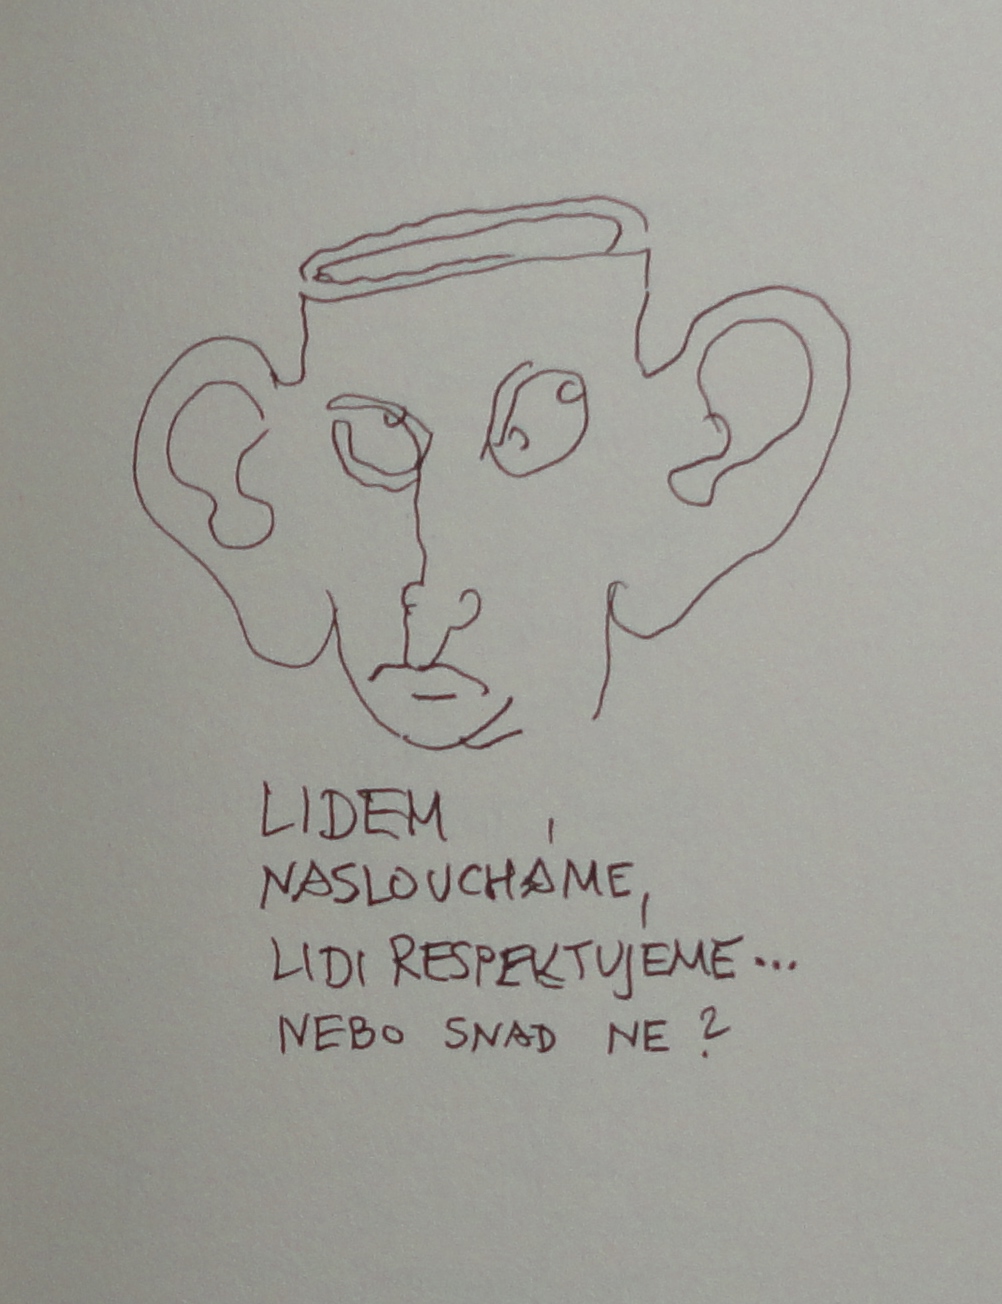 LIDEM
NASLOUCHÁME,
LIDI RESPEKTUJEME...
NEBO SNAD NE?